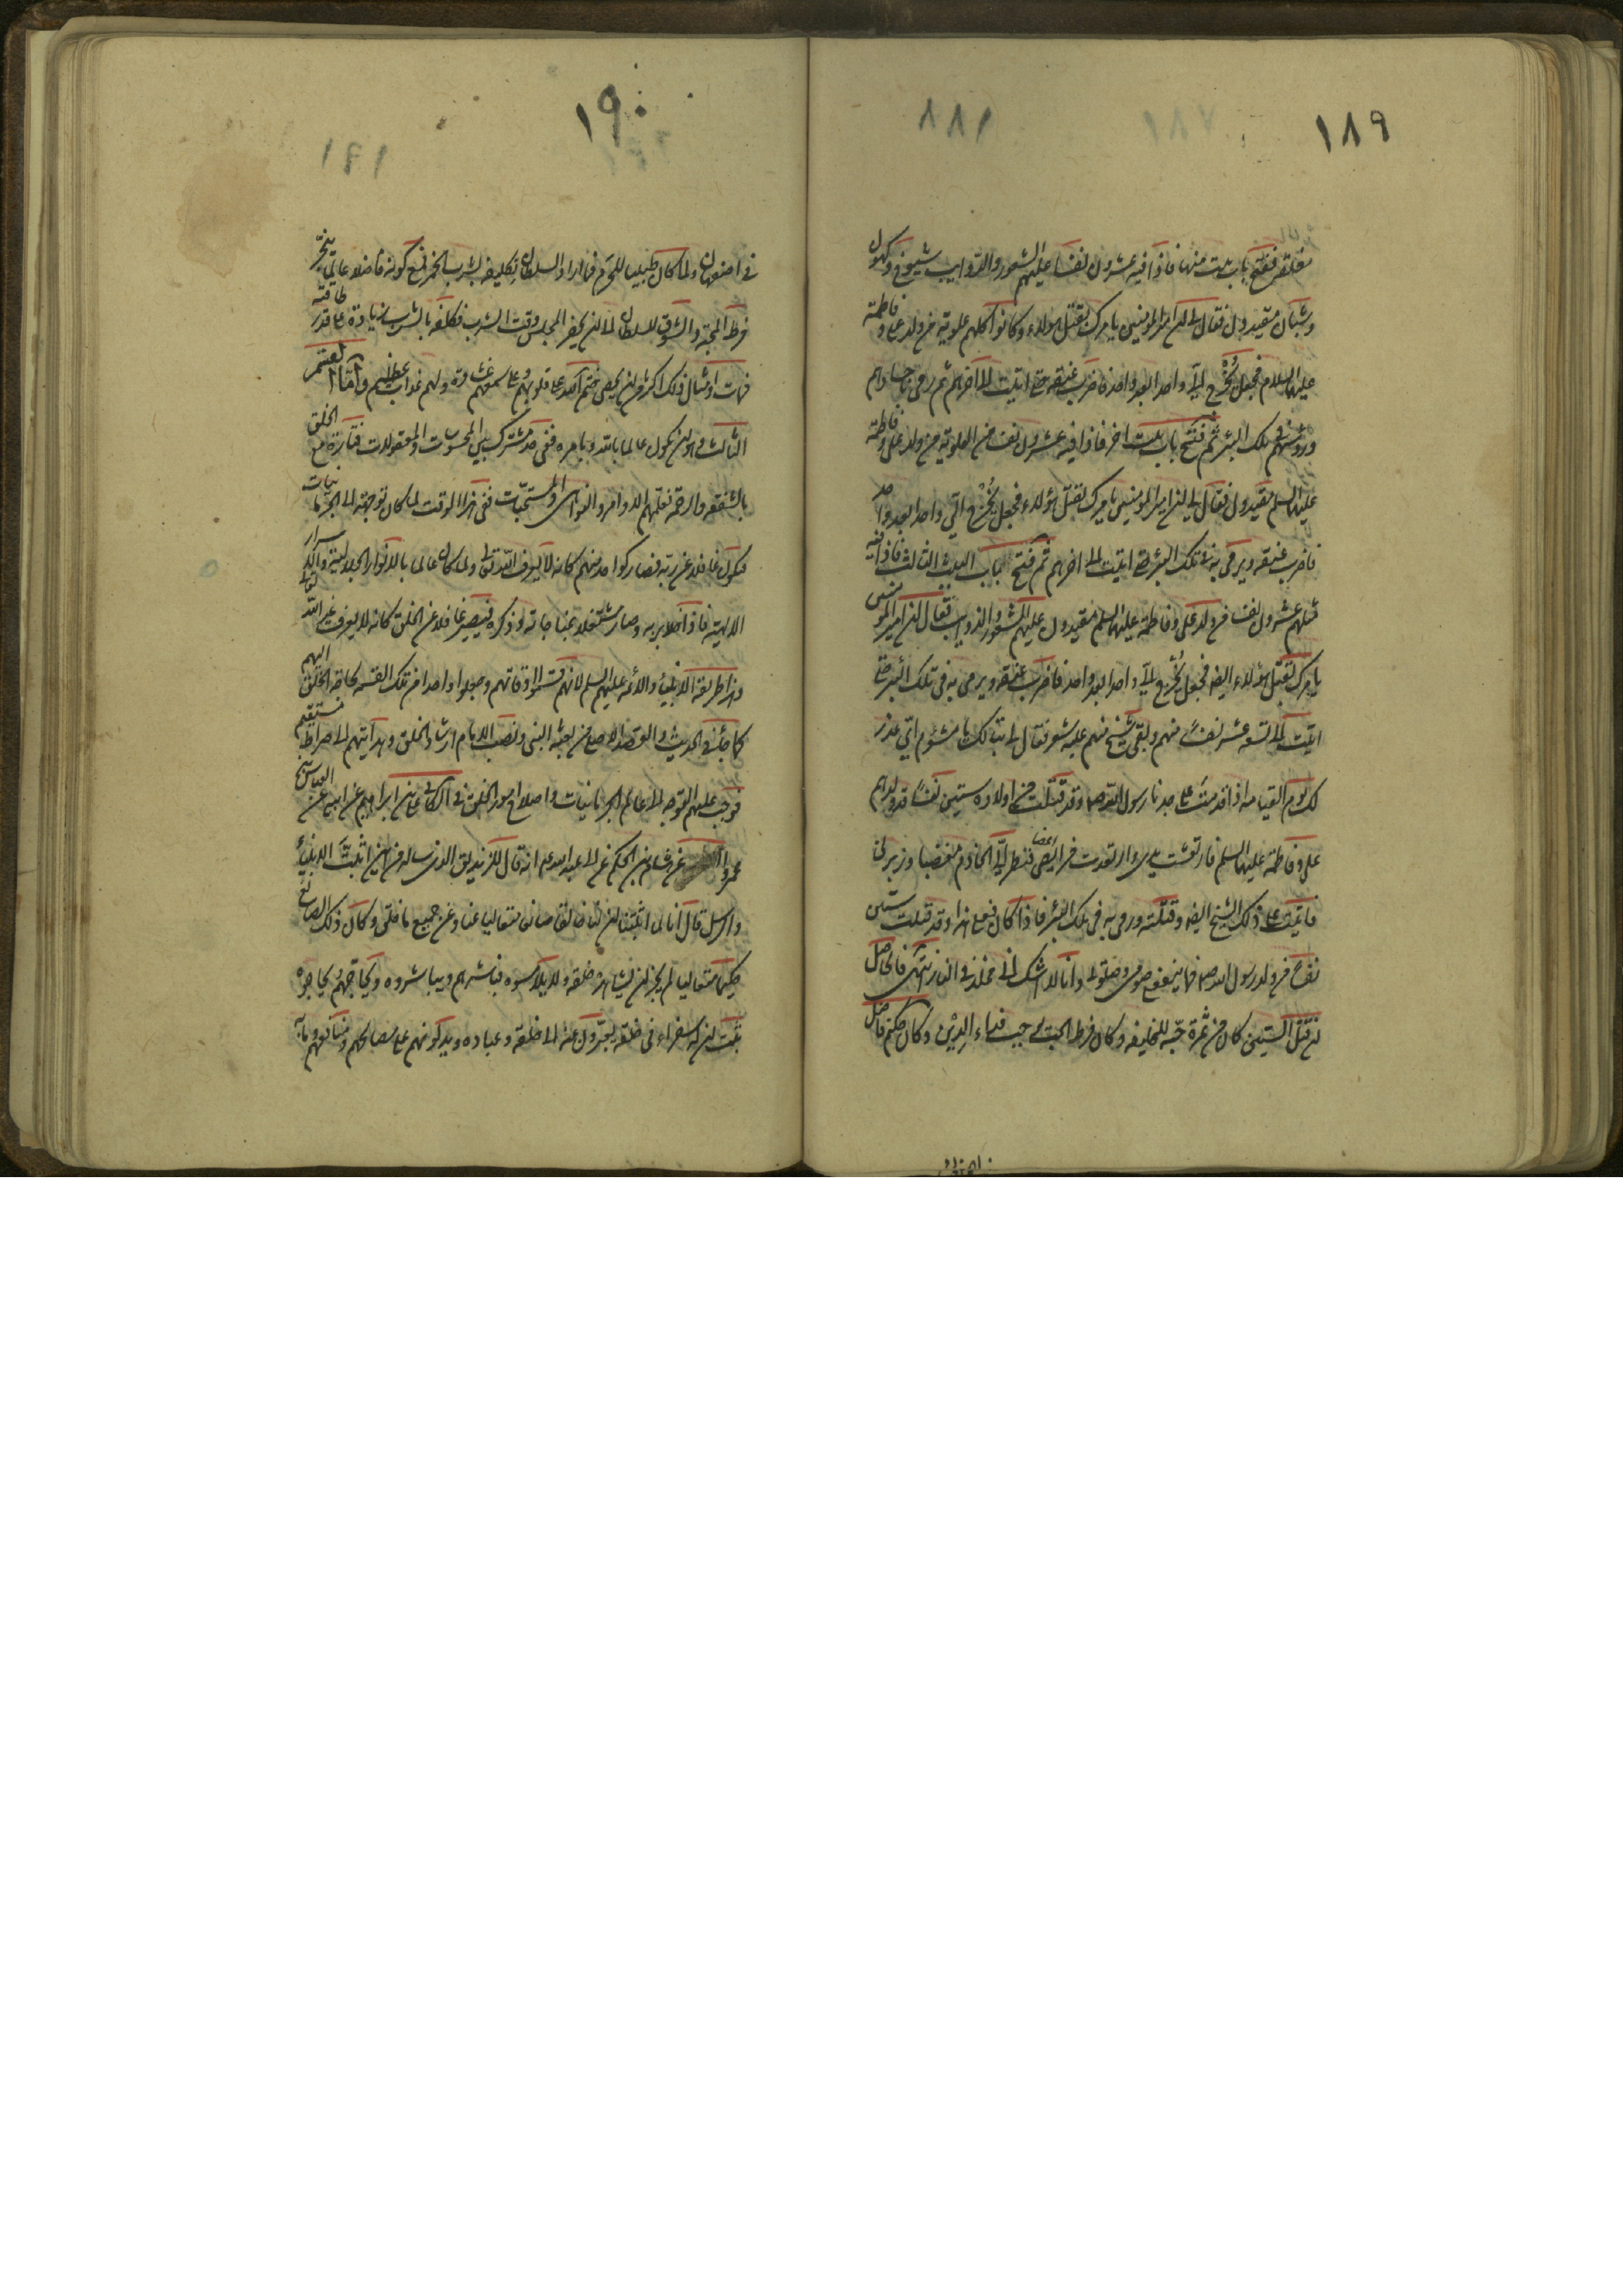 ١٨٩
مغلقة ففتح باب بيت منها فاذا فيه عشرون نفسا عليهم الشعور والذوايب شيوخ وكهول
وشبان مقيدون فقال لي ان امير المؤمنين يامرك بقتل هؤلاء وكانوا كلهم علوية من ولد علي وفاطمة
عليهما السلام فجعل يُخرج اليّ واحدا بعد واحد فاضرب عنقه حتى اتيت الى آخرهم ثم رمى باجسادهم
ورؤسهم في تلك البئر ثم فتح باب بيت اخر فاذا فيه عشرون نفسا من العلوية من ولد علي وفاطمة
عليهما السلم مقيدون فقال لي ان امير المؤمنين يامرك بقتل هؤلاء فجعل يُخرج اليّ واحدا بعد واحد
فاضرب عنقه ويرمى به في تلك البئر حتى اتيت الى اخرهم ثم فتح باب البيت الثالث فاذا فيه
مثلهم عشرون نفسا من ولد علي وفاطمة عليهما السلم مقيدون عليهم الشعور والذوايب فقال ان امير المؤمنين
يامرك بقتل هؤلاء ايضه فجعل يُخرج اليّ واحدا بعد واحد فاضرب عنقه ويرمى به في تلك البئر حتى
اتيت الى تسعة عشر نفسًا منهم وبقى شيخ منهم عليه شعر فقال لي تبا لك يا مشئوم اي عذر
لك يوم القيامه اذا قدمت على جدنا رسول الله ص وقد قتلت من اولاده ستين نفسًا قد ولدهم
علي وفاطمة عليهما السلم فارتعشت يدى وارتعدت فرايصى فنظر اليّ الخادم مغضبا وزبرني
فاتيت على ذلك الشيخ ايضه وقتلته ورمى به في تلك البئر فاذا كان فعلى هذا وقد قتلت ستين
نفسا من ولد رسول الله ص فما ينفعنى صومى وصلوتى وانا لا اشك انى مخلد في النار انتهى فالحاصل
ان قتل الستين كان من ثمرة حبّه للخليفه وكان فرط المحبة
١٩٠
في اصفهان ولما كان طبيبا للمحرم فما اراد السلطان تكليفه بشرب الخمر مع كونه فاضلا عالما
فرط المحبة والشوق للسلطان الى ان يحضر المجلس وقت الشرب فكلفه بالشرب زيادة على قدر طاقته
فمات وامثال ذلك اكثر من ان يحصى ختم الله على قلوبهم وعلى سمعهم غشاوة ولهم عذاب عظيم وامّا القسم
الثالث وهو ان يكون عالما بالله وبامره فهى حد مشترك بين المحسوسات والمعقولات فتارة مع الخلق
بالشفقة والرحمة فعلّمهم الاوامر والنواهى والمستحبّات ففي هذا الوقت لما كان توجهه الى الجزئيات
فيكون غافلا عن ربه فصار كواحد منهم كانه لا يعرف الله تعالى ولما كان عالما بالانوار الجلالية والاسرار
الالهية فاذا خلا بربه وصار مشتغلا بمناجاته وذكره فيصير غافلا عن الخلق كانه لا يعرف غير الله تعالى
وهذا طريقة الانبياء والائمة عليهم السلم لانهم قسموا اوقاتهم وجعلوا واحدا من تلك القسمة كافة الخلق
كما جائ في الحديث والمقصد الاصلي من بعثة النبى ونصب الامام ارشاد الخلق وهدايتهم الى صراط مستقيم
فوجب عليهم التوجه الى عالم الجزئيات واصلاح امور الخلق في الكافى على بن ابراهيم عن ابيه عن العباس بن
عمرو عن هشام بن الحكم عن ابى عبد الله ع انه قال للزنديق الذى ساله من اين اثبتّ الانبيآء
والرسل قال انا لما اثبتنا ان لنا خالقا صانعا متعاليا عنا وعن جميع ما خلق وكان ذلك الصانع
حكيما متعاليا لم يجز ان يشاهده خلقه ولا يلامسوه فيباشرهم ويباشروه ويحاجّهم ويحاجوه
ثبت ان له سفراء في خلقه يعبّرون عنه الى خلقه وعباده ويدلونهم على مصالحهم ومنافعهم وما به